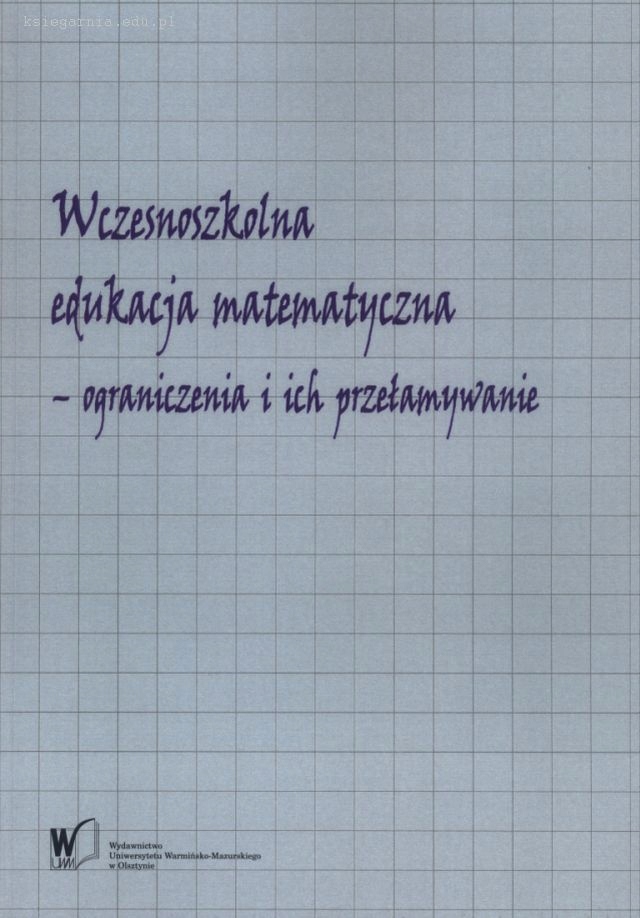 ksiegarnia.edu.pl
Wczesnoszkolna
edukacja matematyczna
– ograniczenia i ich przełamywanie
W
UWM
Wydawnictwo
Uniwersytetu Warmińsko-Mazurskiego
w Olsztynie